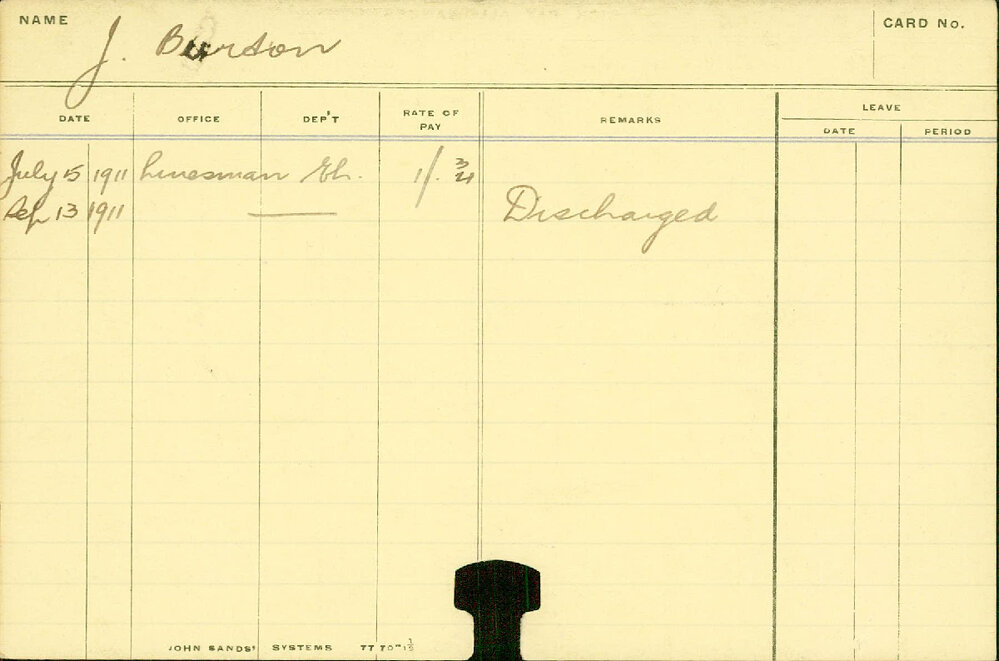 NAME J. Burton CARD No.
DATE OFFICE DEP'T RATE OF PAY REMARKS LEAVE
DATE PERIOD
July 5 1911 Linesman Eh. 1/. 3/4
Sep 13 1911 Discharged
JOHN SANDS' SYSTEMS